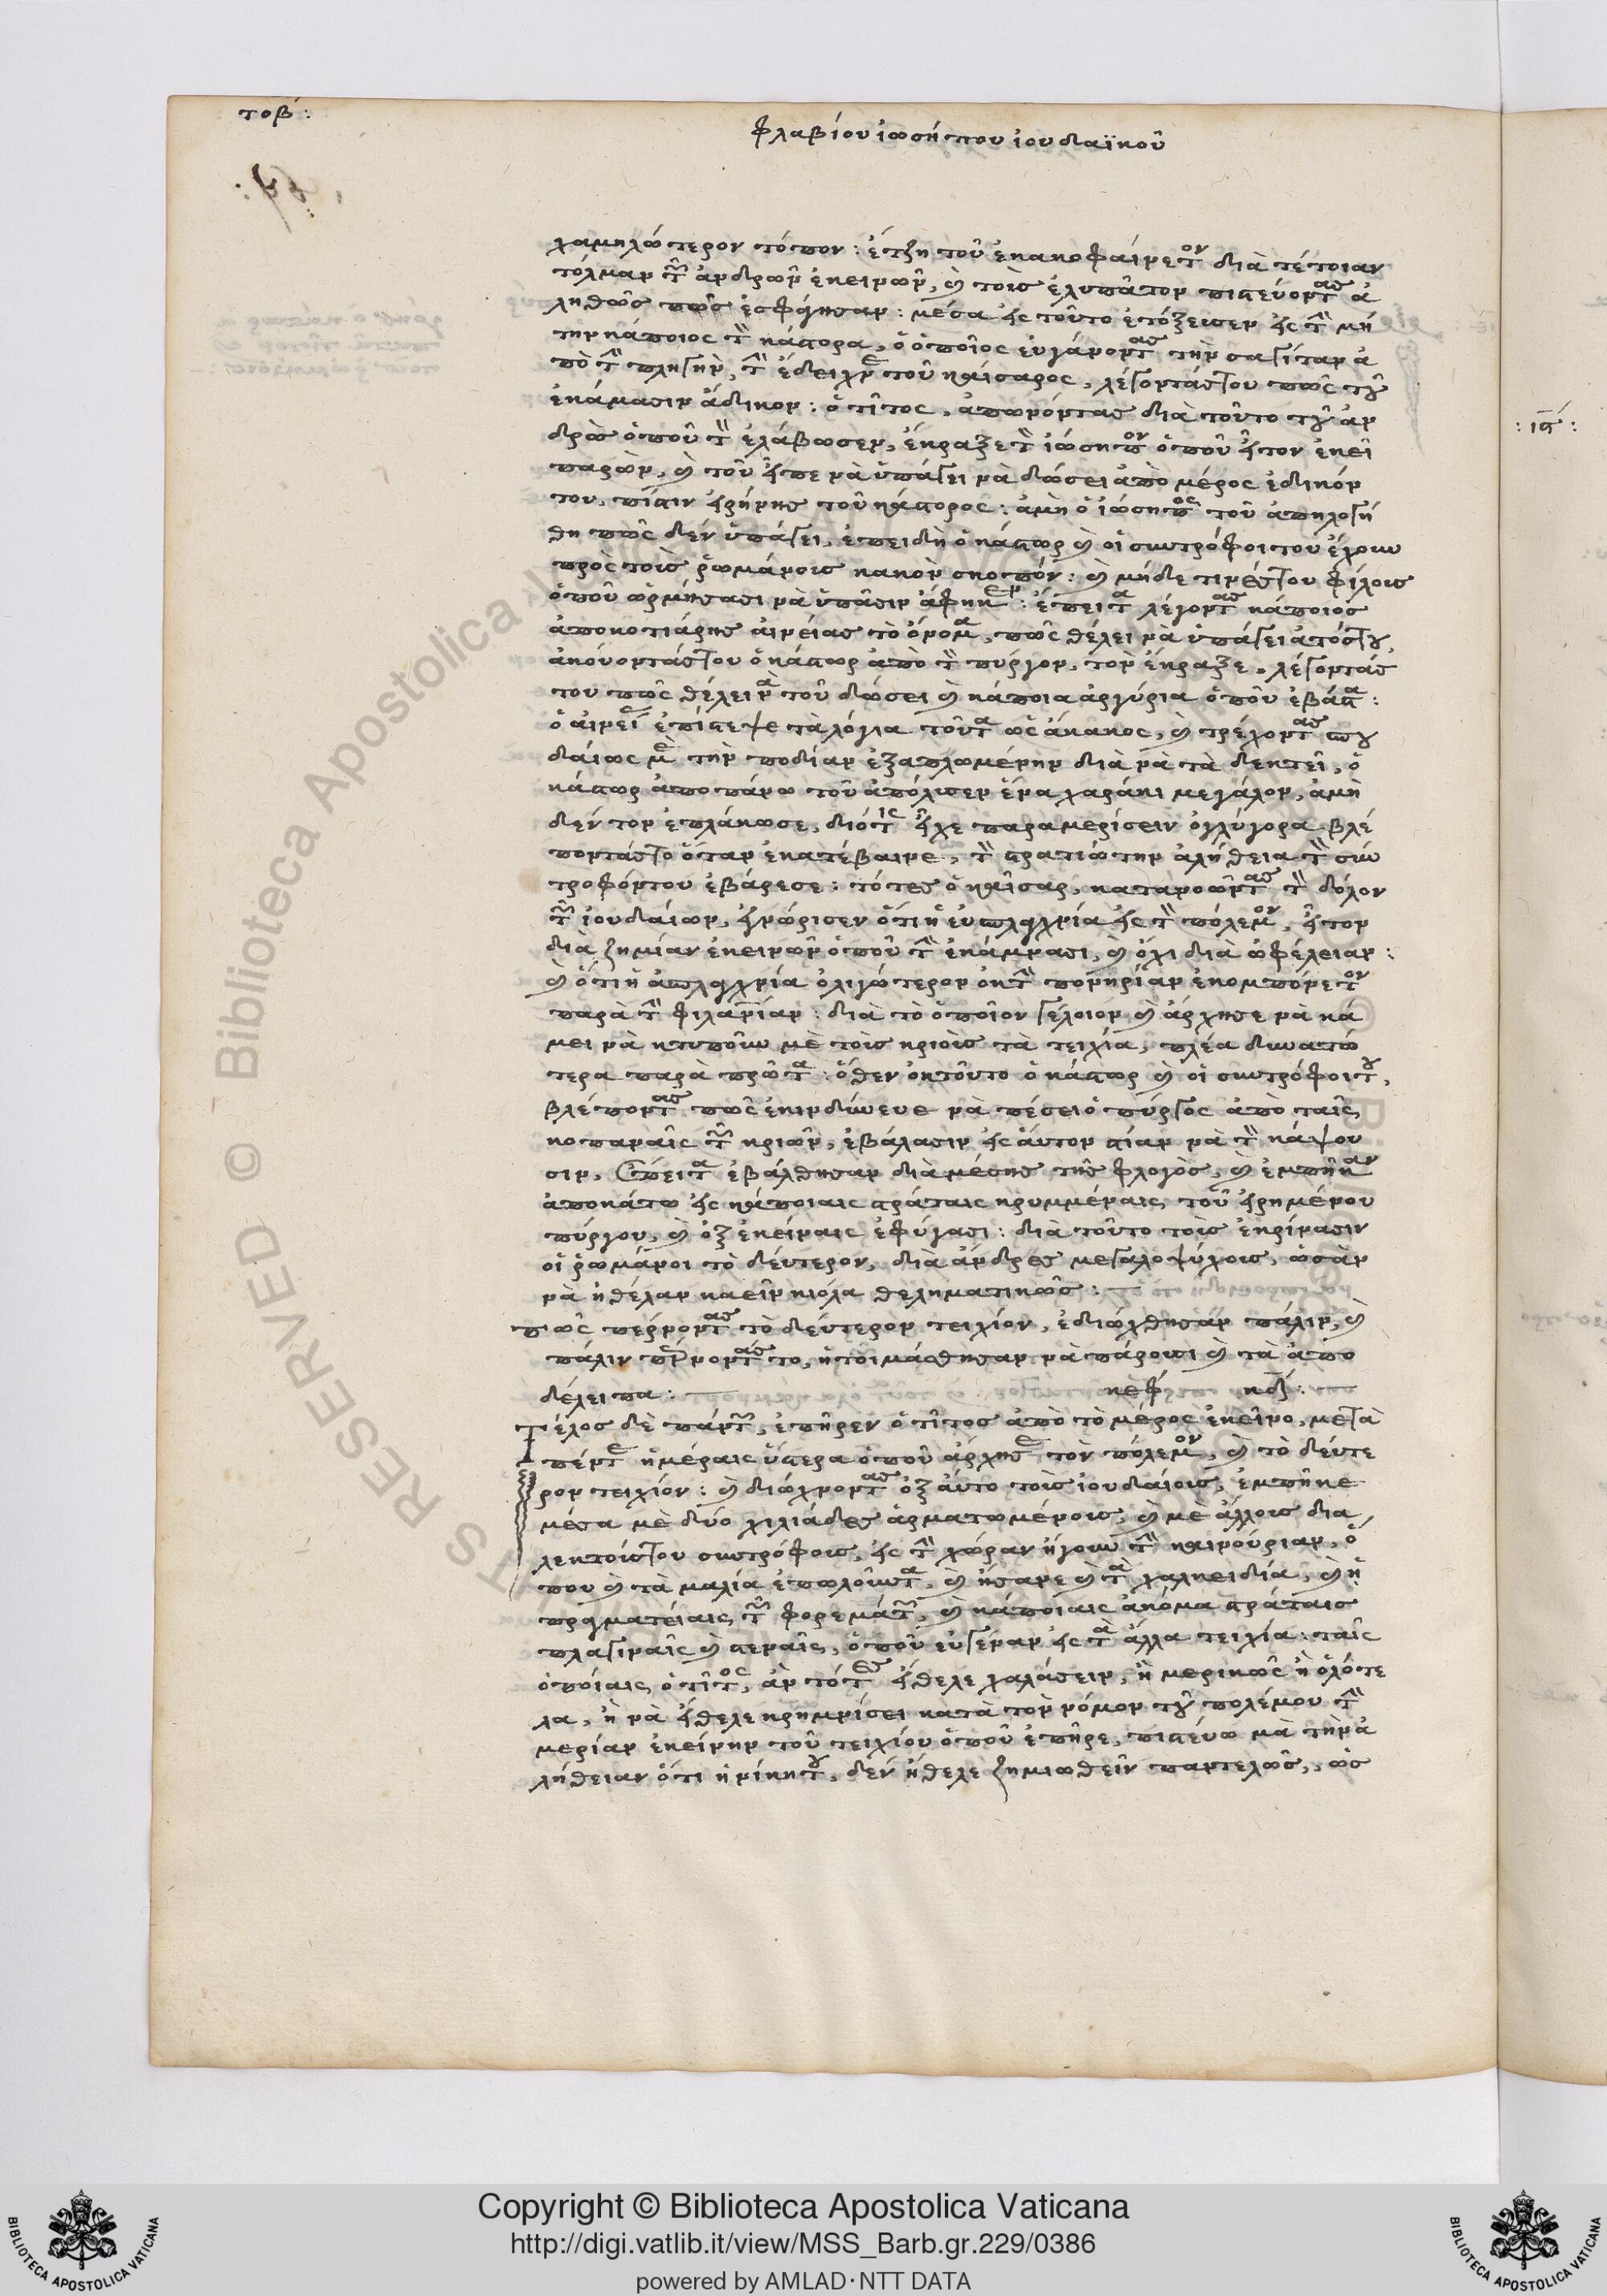 τοβ:
φλαβίου ἰωσήπου ἰουδαϊκοῦ
χαμηλώτερον τόπον: ἔτζη τοῦ ἐκακοφαίνετον διὰ τέτοιαν
τόλμαν τῶν ἀνδρῶν ἐκεινῶν, καὶ τοὺς ἐλυπᾶτον πιστεύοντας ἀ
ληθῶς πῶς ἐσφάγησαν: μέσα εἰς τοῦτο ἐτόξευσεν εἰς τὴν μύ
την κάποιος τὸν κάστορα, ὁ ὁποῖος εὐγάνοντας τὴν σαγίταν ἀ
πὸ τὴν πληγὴν, τὴν ἔδειχνε τοῦ καίσαρος, λέγοντάς του πῶς τοῦ
ἐκάμασιν ἄδικον: ὁ τίτος, ἀπωνόντας διὰ τοῦτο τοῦ ἀν
δρὸς ὁποῦ τὸν ἐλάβωσεν, ἔκραξε τὸν ἰώσηπον ὁποῦ ἦτον ἐκεῖ
παρὼν, καὶ τοῦ εἶπε νὰ ὑπάγει νὰ δώσει ἀπὸ μέρος ἐδικόν
του, πίστιν εἰρήνης τοῦ κάστορος: ἀμὴ ὁ ἰώσηπος τοῦ ἀπηλογή
θη πῶς δὲν ὑπάγει, ἐπειδὴ ὁ κάστωρ καὶ οἱ συντρόφοι του ἔχουν
πρὸς τοὺς ῥωμάνους κακὸν σκοπόν: καὶ μήδε τινές του φίλοις
ὁποῦ ὡρμήσασι νὰ ὑπᾶσιν ἀφῆκεν: ἔπειτα λέγοντας κάποιος
ἀποκοτιάρης αἰνείας τὸ ὄνομα, πῶς θέλει νὰ ὑπάγει ἀτόςτου,
ἀκούοντάς του ὁ κάστωρ ἀπὸ τὸν πύργον, τὸν ἔκραξε, λέγοντάς
του πῶς θέλει νὰ τοῦ δώσει καὶ κάποια ἀργύρια ὁποῦ ἐβάστα:
ὁ αἰνείας ἐπίστεψε τὰ λόγια τοῦτα ὡς ἄκακος, καὶ τρέχοντας σπου
δαίως μὲ τὴν ποδίαν ἐξαπλωμένην διὰ νὰ τὰ δεκτεῖ, ὁ
κάστωρ ἀποπάνω τοῦ ἀπόλυσεν ἕνα χαράκι μεγάλον, ἀμὴ
δέν τον ἐπλάκωσε, διότις εἶχε παραμερίσειν ὀγλύγορα βλέ
ποντάς το ὅταν ἐκατέβαινε, τὸν στρατιώτην ἀλήθεια τὸν σύν
τροφόν του ἐβάρεσε: τότες ὁ καῖσαρ, κατανοῶντας τὸν δόλον
τῶν ἰουδαίων, ἐγνώρισεν ὅτι ἡ εὐσπλαγχνία εἰς τὸν πόλεμον, ἦτον
διὰ ζημίαν ἐκεινῶν ὁποῦ τὴν ἐκάμνασι, καὶ ὄχι διὰ ὠφέλειαν:
καὶ ὅτι ἡ ἀσπλαγχνία ὀλιγώτερον ὀκ τὴν πονηρίαν ἐκομπόνετον
παρὰ τὴν φιλανίαν: διὰ τὸ ὁποῖον γέλοιον καὶ ἄρχησε νὰ κά
μει νὰ κτυποῦν μὲ τοὺς κριοὺς τὰ τειχία, πλέα δυνατώ
τερα παρὰ πρῶτα: ὅθεν ὀκτοῦτο ὁ κάστωρ καὶ οἱ συντρόφοι του,
βλέποντας πῶς ἐκινδύνευε νὰ πέσει ὁ πύργος ἀπὸ ταῖς
κοπαναῖς τῶν κριῶν, ἐβάλασιν εἰς αὐτον στίαν νὰ τὸν κάψου
σιν, ἔπειτα ἐβάλθησαν διὰ μέσης τῆς φλογὸς, καὶ ἐμπῆκαν
ἀποκάτω εἰς κάποιαις στράταις κρυμμέναις τοῦ εἰρημένου
πύργου, καὶ ὀξ ἐκείναις ἐφύγασι: διὰ τοῦτο τοὺς ἐκρίνασιν
οἱ ῥωμάνοι τὸ δεύτερον, διὰ ἄνδρες μεγαλοψύχους, ὡσὰν
νὰ ἠθέλαν καεῖν κιόλα θεληματικῶς:
πῶς πέρνοντας τὸ δεύτερον τειχίον, ἐδιώχθησαν πάλιν, καὶ
πάλιν πέρνοντάς το, ἡτοιμάσθησαν νὰ πάρουσι καὶ τὰ ἀπο
δέλειπα: κεφ κδ:
Τέλος δὲ πάντων, ἐπῆρεν ὁ τίτος ἀπὸ τὸ μέρος ἐκεῖνο, μετὰ
πέντε ἡμέραις ὕστερα ὁποῦ ἄρχησε τὸν πόλεμον, καὶ τὸ δεύτε
ρον τειχίον: καὶ διώχνοντας ὀξ αὐτο τοὺς ἰουδαίους, ἐμπῆκε
μέσα μὲ δύο χιλιάδες ἁρματωμένους, καὶ μὲ ἄλλους δια
λεκτούς του συντρόφους, εἰς τὴν χώραν ἤγουν τὴν καινούριαν, ὁ
που καὶ τὰ μαλία ἐπωλοῦντα, καὶ ἤσανε καὶ τὰ χαλκειδία, καὶ ἡ
πραγματείαις τῶν φορεμάτων, καὶ κάποιαις ἀκόμα στράταις
πλαγιναῖς καὶ στεναῖς, ὁποῦ εὐγέναν εἰς τὰ ἄλλα τειχία: ταῖς
ὁποίαις ὁ τίτος, ἂν τότες ἤθελε χαλάσειν, ἢ μερικῶς ἢ ὁλότε
λα, ἢ νὰ ἤθελε κρημνίσει κατὰ τὸν νόμον τοῦ πολέμου τὴν
μερίαν ἐκείνην τοῦ τειχίου ὁποῦ ἐπῆρε, πιστεύω μὰ τὴν ἀ
λήθειαν ὅτι ἡ νίκη του, δὲν ἤθελε ζημιωθεῖν παντελῶς, ὡς
:ια:
Copyright © Biblioteca Apostolica Vaticana
http://digi.vatlib.it/view/MSS_Barb.gr.229/0386
powered by AMLAD·NTT DATA